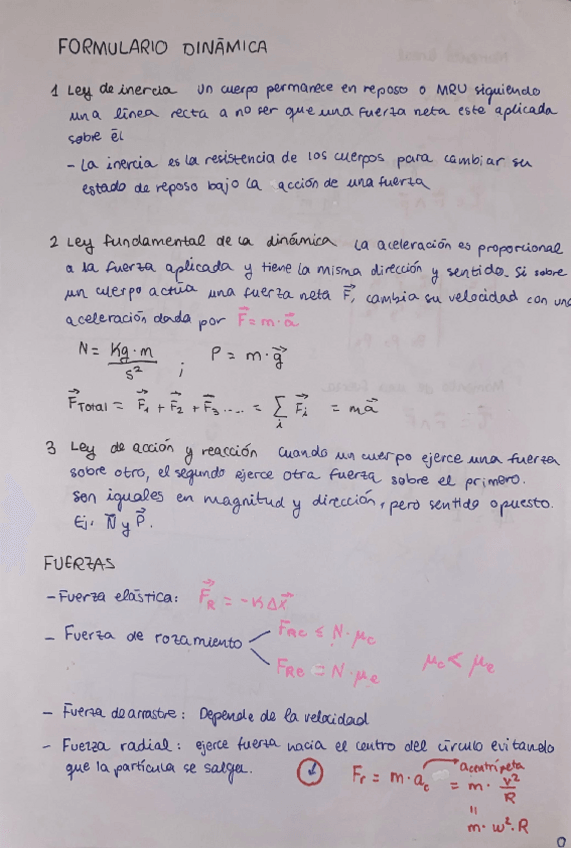 FORMULARIO DINÁMICA
1 Ley de inercia un cuerpo permanece en reposo o MRU siguiendo
una línea recta a no ser que una fuerza neta este aplicada
sobre él
- La inercia es la resistencia de los cuerpos para cambiar su
estado de reposo bajo la acción de una fuerza
2 Ley fundamental de la dinámica La aceleración es proporcional
a la fuerza aplicada y tiene la misma dirección y sentido. Si sobre
un cuerpo actúa una fuerza neta F⃗, cambia su velocidad con una
aceleración dada por F⃗ = m·a⃗
N = Kg·m / s² ; P = m·g⃗
F⃗Total = F⃗1 + F⃗2 + F⃗3 .... = ∑i F⃗i = ma⃗
3 Ley de acción y reacción cuando un cuerpo ejerce una fuerza
sobre otro, el segundo ejerce otra fuerza sobre el primero.
Son iguales en magnitud y dirección, pero sentido opuesto.
Ej. N⃗ y P⃗.
FUERZAS
- Fuerza elástica: F⃗R = -KΔX⃗
- Fuerza de rozamiento FRc ≤ N·μc
FRe = N·μe μc < μe
- Fuerza de arrastre: Depende de la velocidad
- Fuerza radial: ejerce fuerza hacia el centro del círculo evitando
que la partícula se salga. Fr = m·ac = m· v²/R
acentrípeta
=
m·w²·R